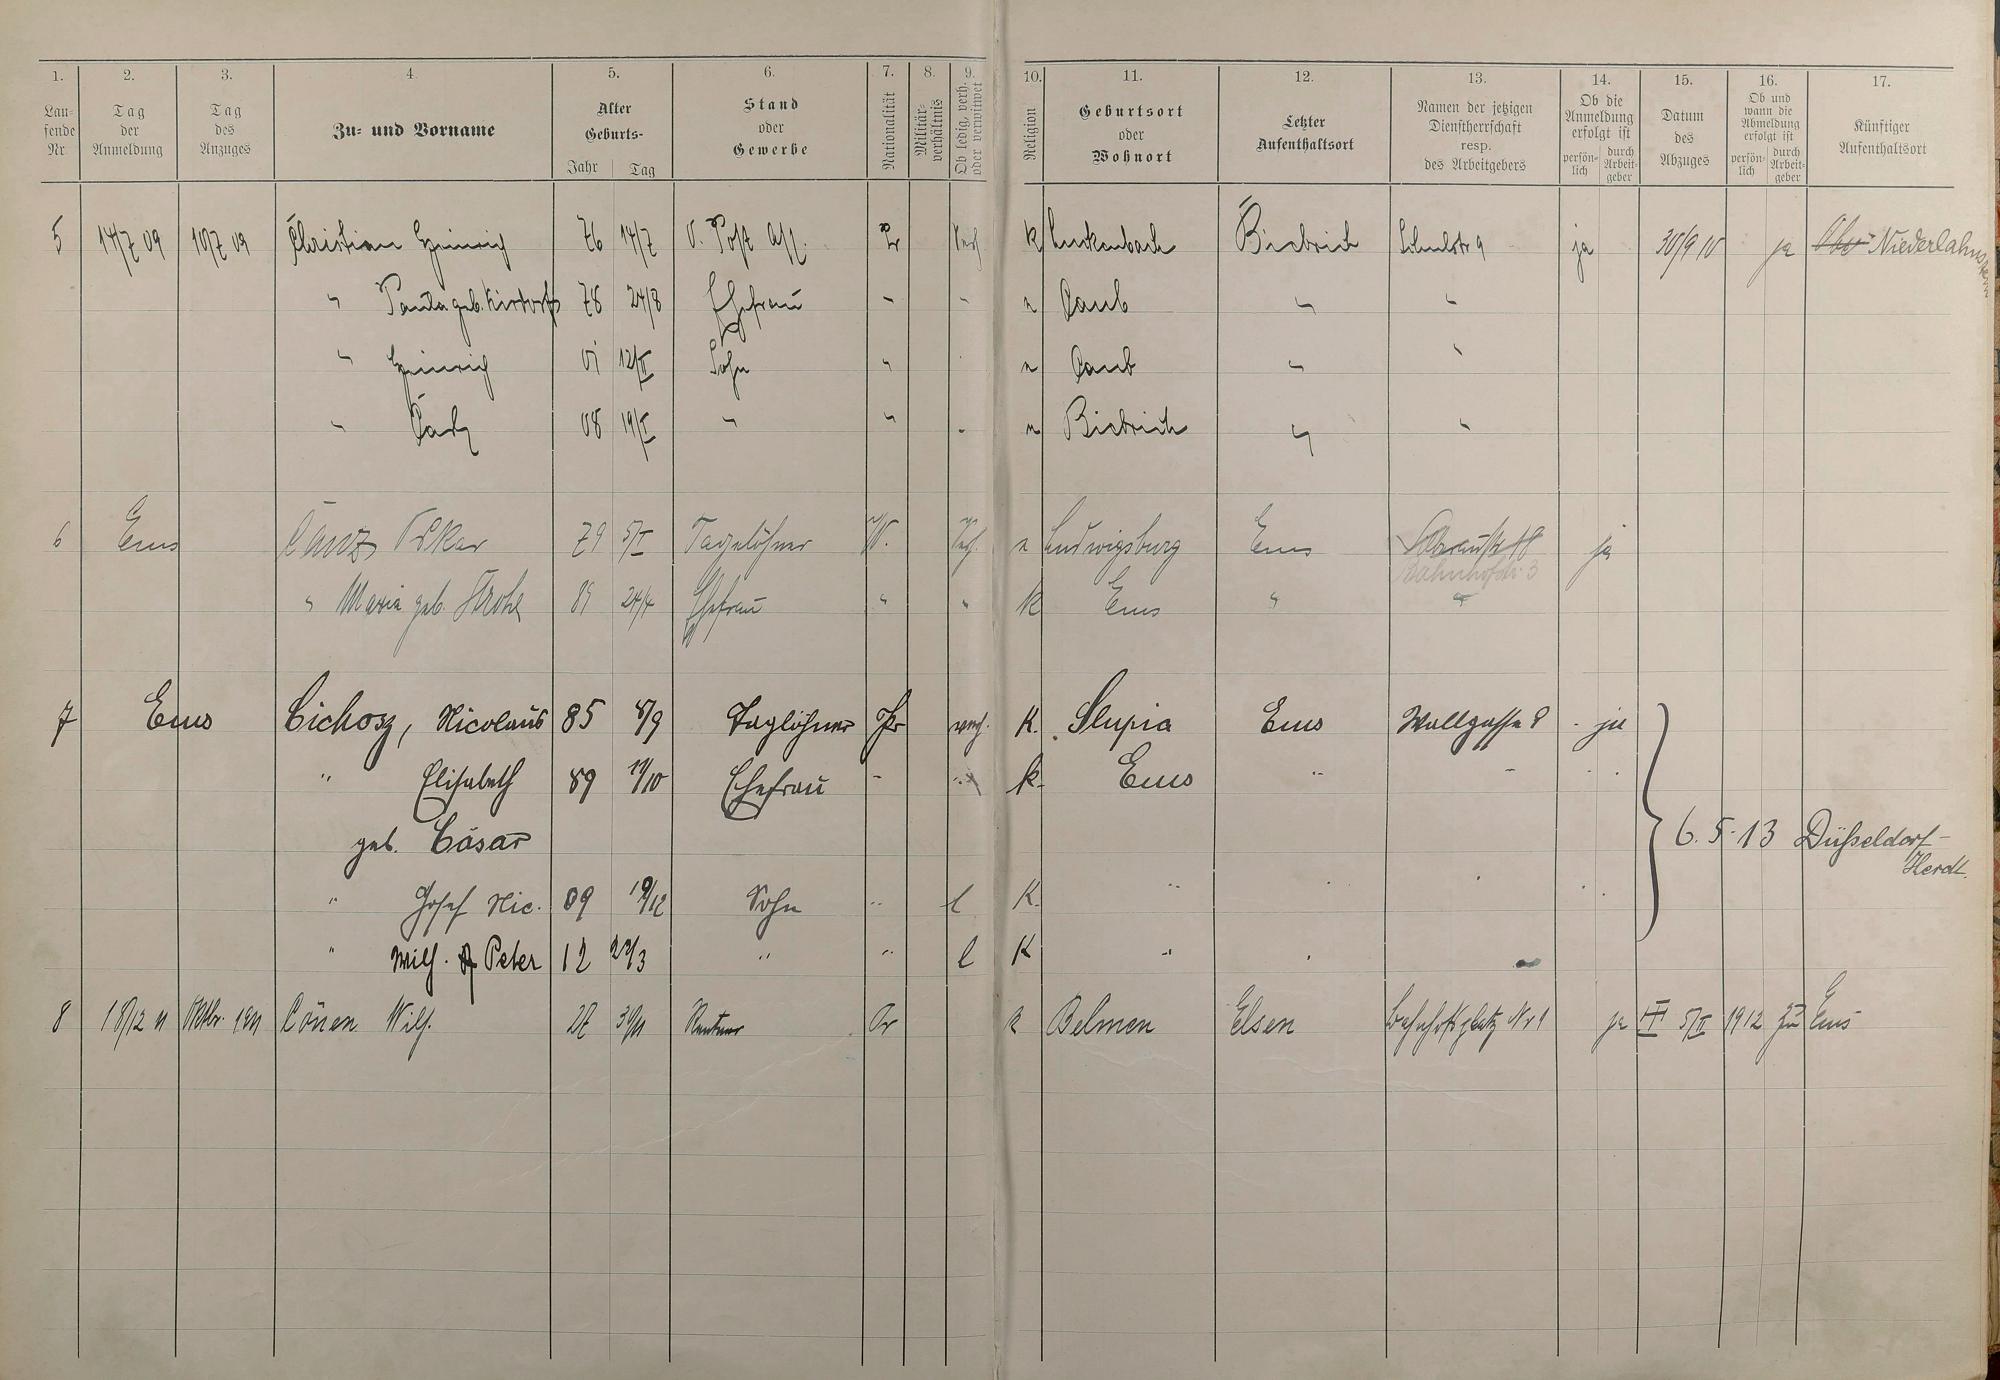 1. 2. 3. 4. 5. 6. 7. 8. 9. 10. 11. 12. 13. 14. 15. 16. 17.
Lau-
fende
Nr.
Tag
der
Anmeldung
Tag
des
Anzuges
Zu- und Vorname
Alter
Geburts-
Jahr Tag
Stand
oder
Gewerbe
Nationalität
Militär-
verhältnis
Ob ledig, verh.
oder verwitwet
Religion
Geburtsort
oder
Wohnort
Letzter
Aufenthaltsort
Namen der jetzigen
Dienstherrschaft
resp.
des Arbeitgebers
Ob die
Anmeldung
erfolgt ist
persön-
lich
durch
Arbeit-
geber
Datum
des
Abzuges
Ob und
wann die
Abmeldung
erfolgt ist
persön-
lich
durch
Arbeit-
geber
Künftiger
Aufenthaltsort
5 14/7 09 10/7 09 Christian Heinrich 76 14/7 O. Post Ass. Pr Verh k Luckenbach Biebrich Schulstr 9 ja 30/9 10 ja Niederlahnstein
" Paula geb. Kirdorf 78 24/8 Ehefrau " " " Caub " "
" Heinrich 07 12/II Sohn " " Caub " "
" Carl 08 19/I " " " Biebrich " "
6 Ems Canz Oskar 79 5/I Tagelöhner W. Verh. " Ludwigsburg Ems ja
Bahnhofstr. 3
" Maria geb. Strohe 89 24/4 Ehefrau " " k Ems " "
7 Ems Cichosz, Nicolaus 85 8/9 Taglöhner Pr verh. K. Slupia Ems Wallgasse 8 ja
" Elisabeth 89 19/10 Ehefrau " " k. Ems " "
geb. Cäsar 6. 5. 13 Düsseldorf-
Herdt.
" Josef Nic. 09 19/12 Sohn " l K. "
" Wilh. Peter 12 29/3 " " l K "
8 18/12 11 Oktbr. 1911 Cönen Wilh. Rentner Pr k Belmen Elsen Bahnhofsplatz Nr 1 ja 5/II 1912 zu Ems